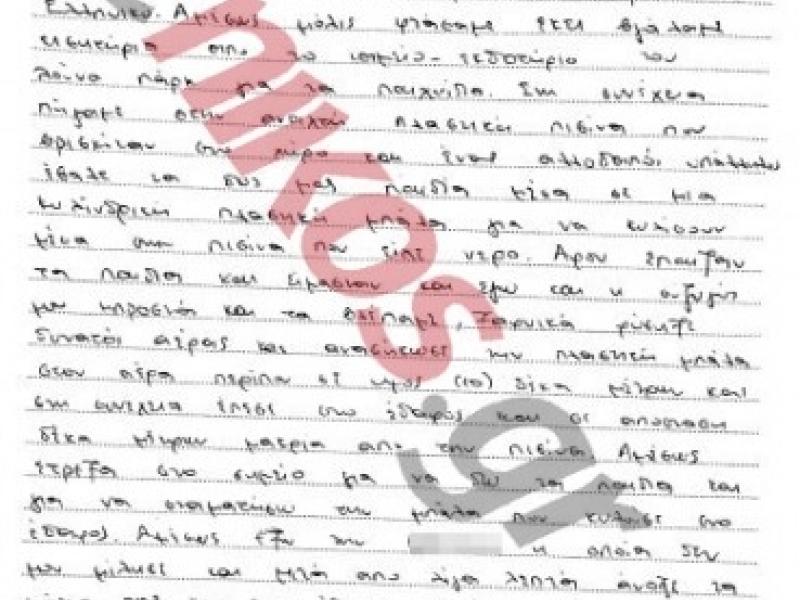 Ελληνικό. Αμέσως μόλις φτάσαμε εκεί βγάλαμε
εισητήρια απο το ταμείο - εκδοτήριο του
λούνα πάρκ για τα παιχνίδια. Στη συνέχεια
πήγαμε στην ανοιχτή πλαστική πισίνα που
βρισκόταν στο χώρο και ένας αλλοδαπός υπάλληλος
έβαλε τα δυο μας παιδιά μέσα σε μια
κυλινδρική πλαστική μπάλα για να κυλήσουν
μέσα στη πισίνα που είχε νερό. Αφου έπαιζαν
τα παιδια και είμασταν και εγω και η συζυγός
μου μπροστά και τα βλέπαμε, ξαφνικά φύσηξε
δυνατός αέρας και ανασήκωσε την πλαστική μπάλα
στον αέρα περίπου σε υψος (10) δέκα μέτρων και
στη συνέχεια έπεσε στο έδαφος και σε αποσταση
δέκα μέτρων μακρια απο την πισίνα. Αμέσως
έτρεξα στο σημείο για να δω τα παιδια και
για να σταματήσω την μπάλα που κυλουσε στο
έδαφος. Αμέσως την η οποία δεν
μου μίλησε και μετά απο λίγα λεπτά άνοιξε τα
nikos.gr